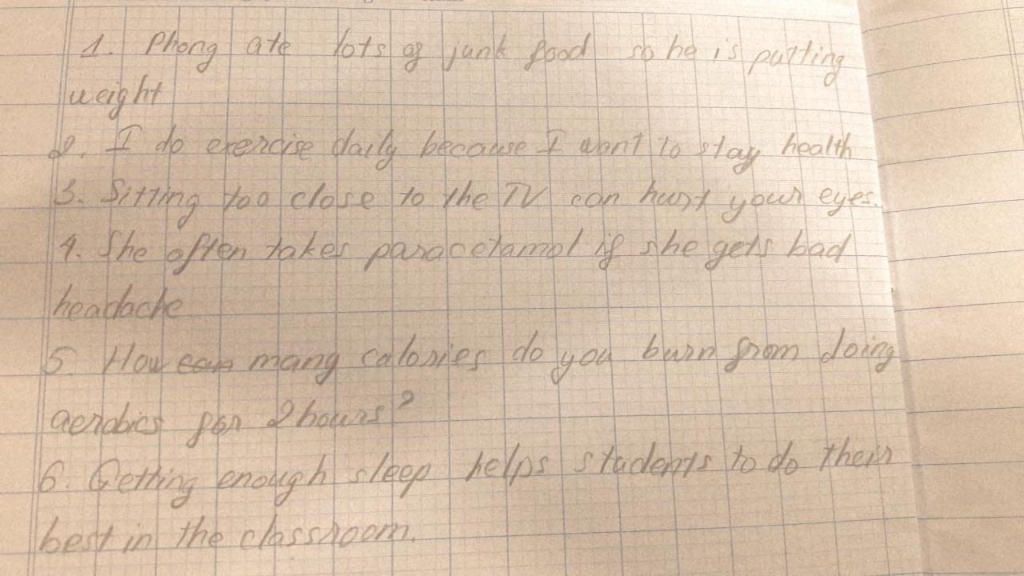 1. Phong ate lots of junk food so he is putting
weight
2. I do exercise daily because I want to stay health
3. Sitting too close to the TV can hurt your eyes.
4. She often takes paracetamol if she gets bad
headache
5. How can many calories do you burn from doing
aerobics for 2 hours?
6. Getting enough sleep helps students to do their
best in the classroom.